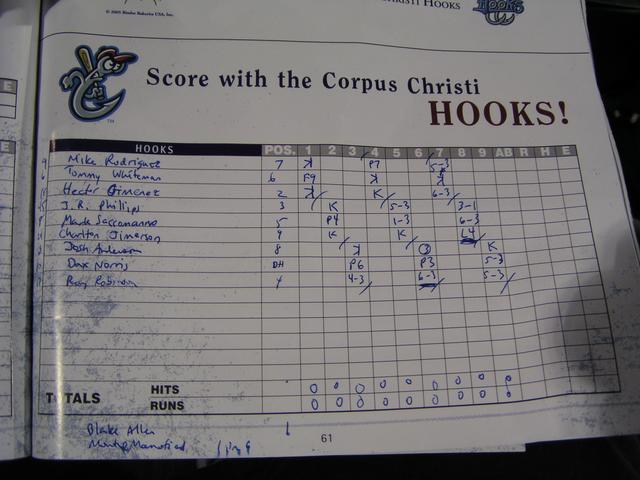 © 2005 Rimless Bakeries USA, Inc.
CHRISTI HOOKS
HOOKS
Score with the Corpus Christi
HOOKS!
HOOKS POS. 1 2 3 4 5 6 7 8 9 AB R H E
Mike Rodriguez 7 K P7 5-3
Tommy Whiteman 6 F9 K K
Hector Gimenez 2 K K 6-3
J.R. Phillips 3 K 5-3 3-1
Mark Saccomanno 5 P4 1-3 6-3
Charlton Jimerson 9 K K L4
Josh Anderson 8 K K
Dax Norris DH P6 P3 5-3
Roy Robinson 4 4-3 6-3 5-3
TOTALS
HITS 0 0 0 0 0 0 0 0 0
RUNS 0 0 0 0 0 0 0 0 0
Blake Allen
61